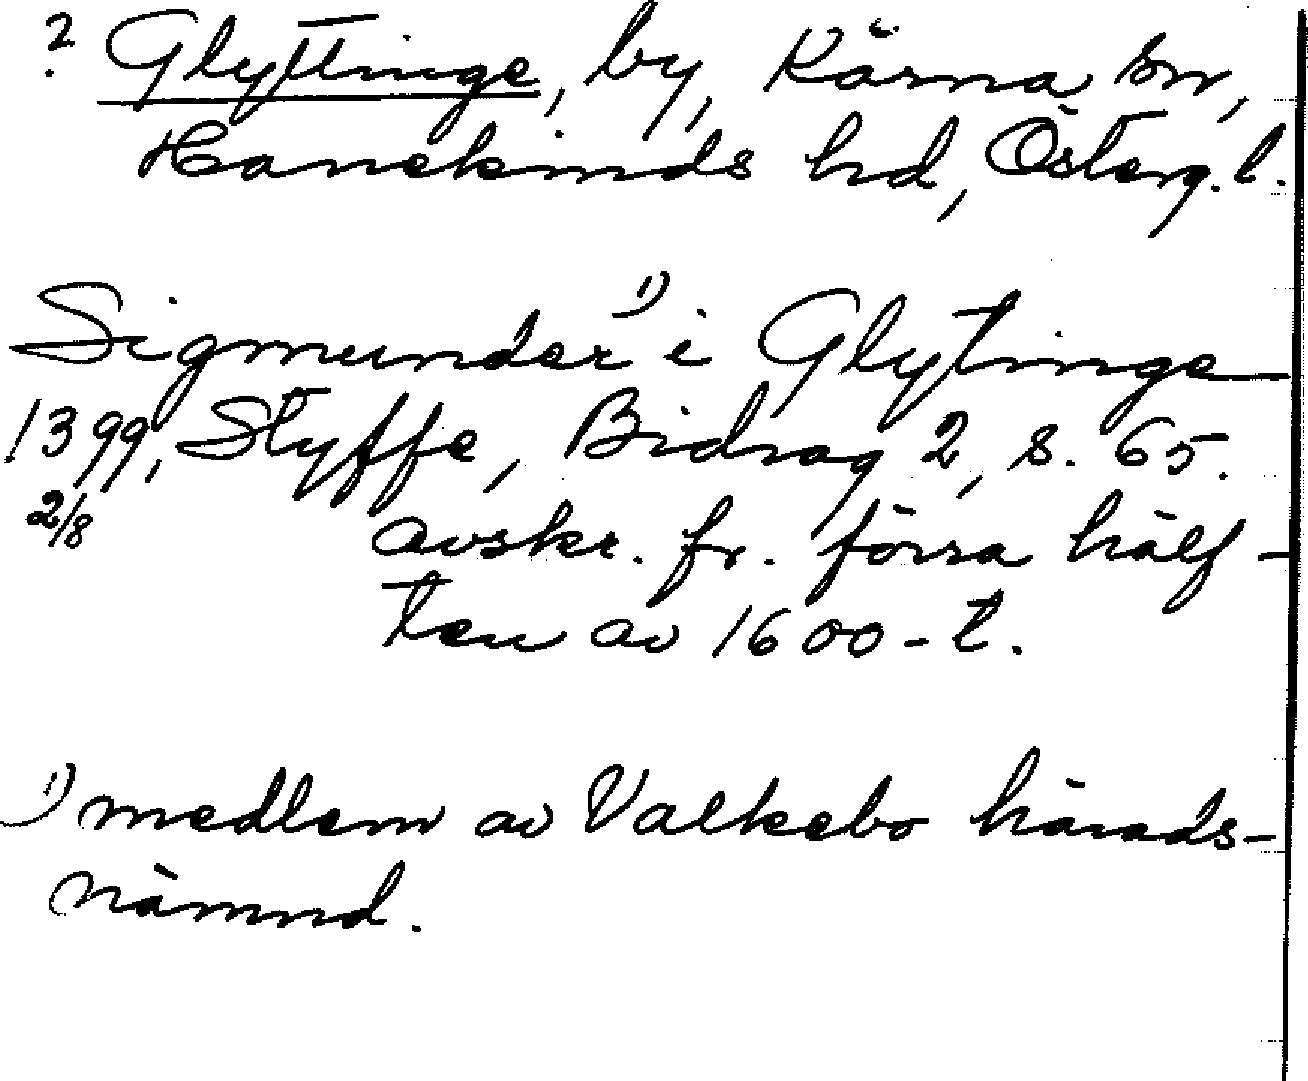 ? Glyttinge, by, Kärna sn,
Hanekinds hd, Österg. l.
Sigmunder ¹) i Glytinge
1399, Styffe, Bidrag 2, s. 65.
2/8 avskr. fr. förra hälf-
ten av 1600-t.
¹) medlem av Valkebo härads-
nämnd.